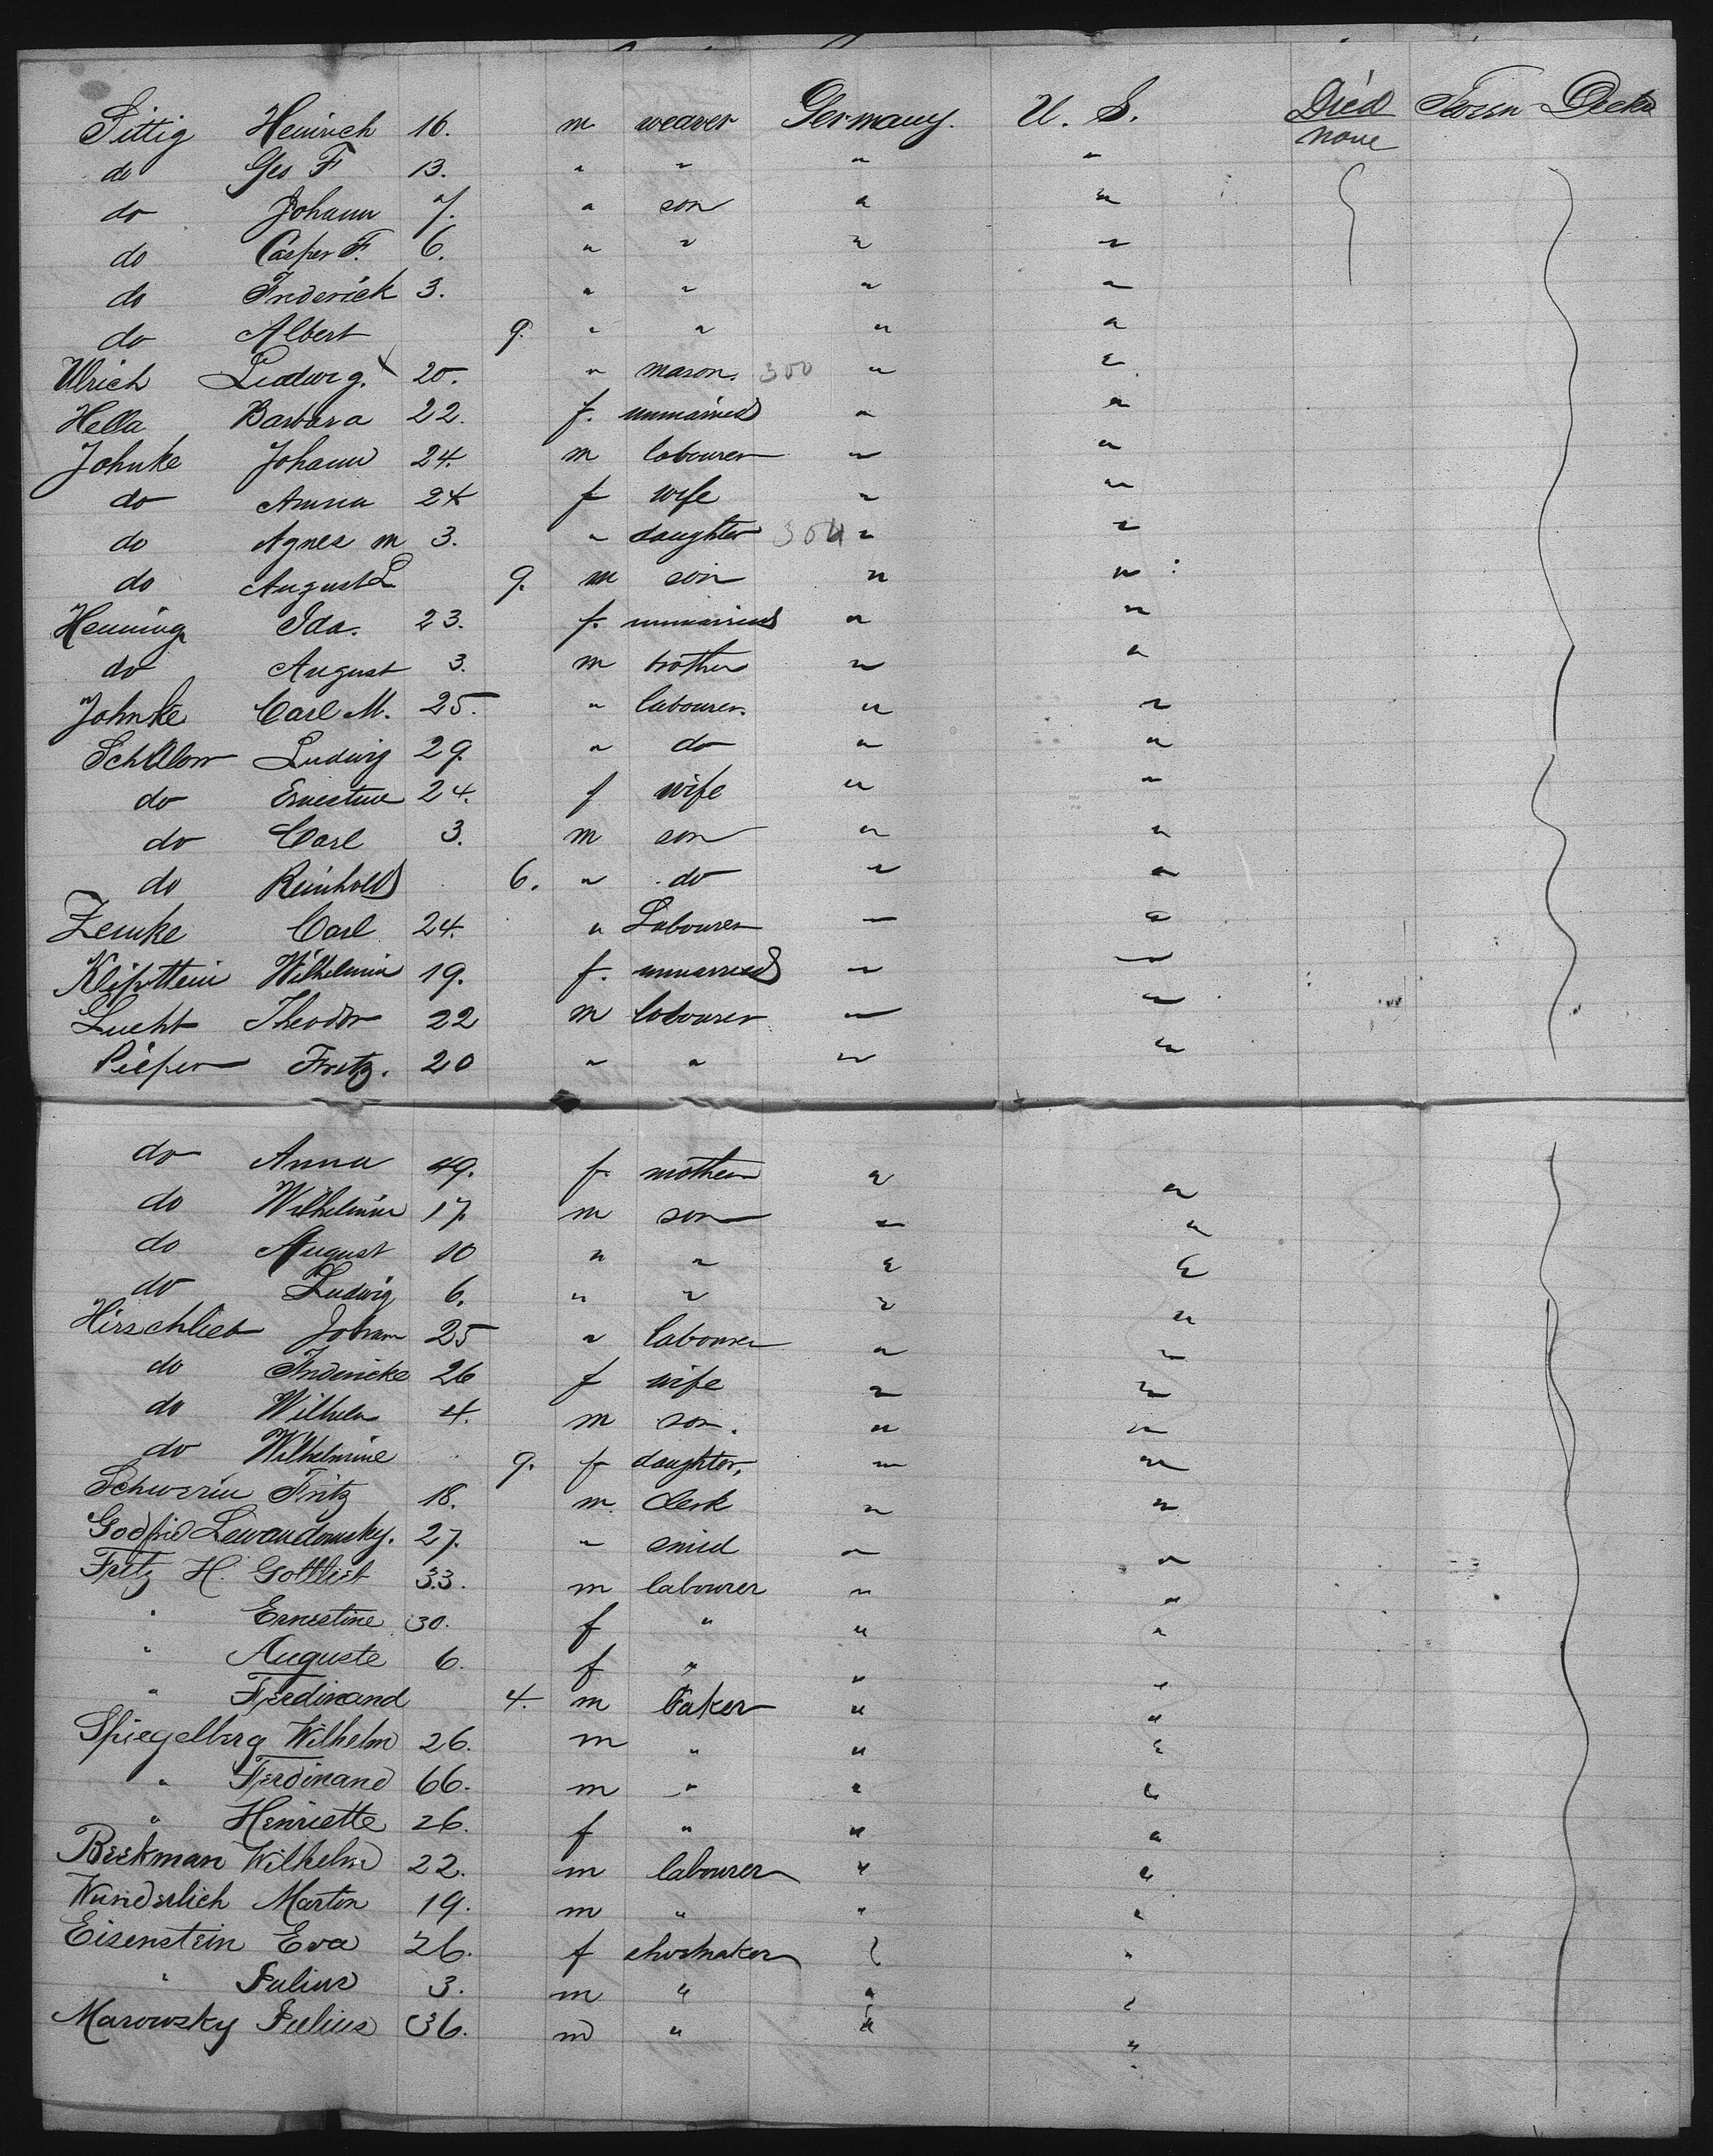 Sittig Heinrich 16. m weaver Germany. U. S. Died Tween Decks
none
do Geo F 13. " " " "
do Johann 7. " son " "
do Casper F. 6. " " " "
do Frederick 3. " " " "
do Albert 9. " " " "
Ulrich Ludwig. 20. " mason. 300 " "
Hella Barbara 22. f. unmarried " "
Johnke Johann 24. m labourer " "
do Anna 24 f wife " "
do Agnes m 3. " daughter 304 " "
do August L 9. m son " "
Henning Ida. 23. f. unmarried " "
do August 3. m brother " "
Johnke Carl M. 25. " labourer. " "
Schülow Ludwig 29. " do " "
do Ernestine 24. f wife " "
do Carl 3. m son " "
do Reinhold 6. " do " "
Zemke Carl 24. " Labourer " "
Klipstein Wilhelmin 19. f. unmarried " "
Lucht Theodor 22 m labourer " "
Pieper Fritz. 20 " " " "
do Anna 49. f. mother " "
do Wilhelmin 17 m son " "
do August 10 " " " "
do Ludwig 6. " " " "
Hirschlieb Johann 25 " labourer " "
do Frdericke 26 f wife " "
do Wilhelm 4. m son. " "
do Wilhelmine 9. f daughter. " "
Schwerin Fritz 18. m. Clerk " "
Godfrid Lewandowsky. 27. " smid " "
Fritz H. Gottlieb 33. m labourer " "
" Ernestine 30. f " " "
" Auguste 6. f " " "
" Ferdinand 4. m baker " "
Spiegelberg Wilhelm 26. m " " "
" Ferdinand 66. m " " "
" Henriette 26. f " " "
Beekman Wilhelm 22. m labourer " "
Wunderlich Martin 19. m " " "
Eisenstein Eva 26. f shoemaker " "
" Julius 3. m " " "
Marowsky Julius 36. m " " "